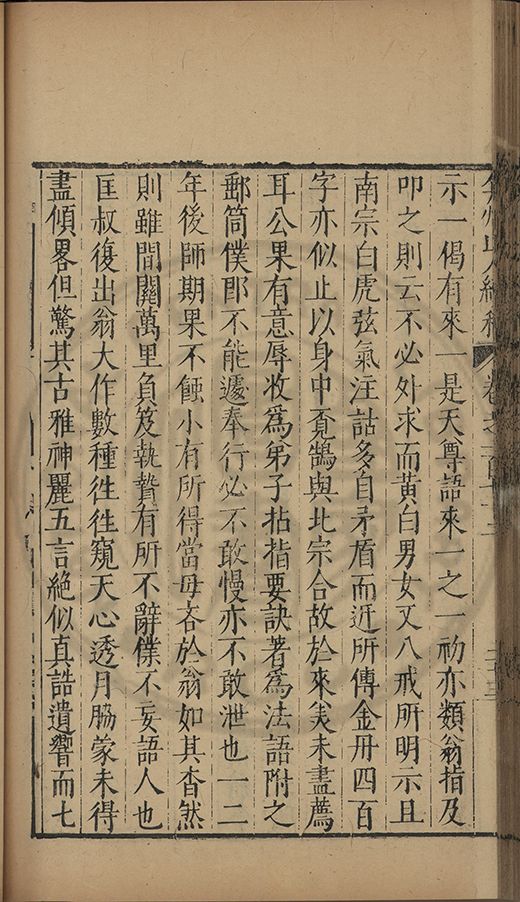 示一偈有來一是天尊語來一之一初亦類翁指及
叩之則云不必外求而黃白男女又八戒所明示且
南宗白虎弦氣注詁多自矛盾而近所傳金丹四百
字亦似止以身中覓鵠與北宗合故於來美未盡薦
耳公果有意辱收為弟子拈指要訣著為法語附之
郵筒僕郎不能遽奉行必不敢慢亦不敢泄也一二
年後師期果不蝕小有所得當毋吝於翁如其杳然
則雖間關萬里負笈執贄有所不辭僕不妄語人也
匡叔復出翁大作數種徃徃窺天心透月脇蒙未得
盡傾畧但驚其古雅神麗五言絕似真誥遺響而七